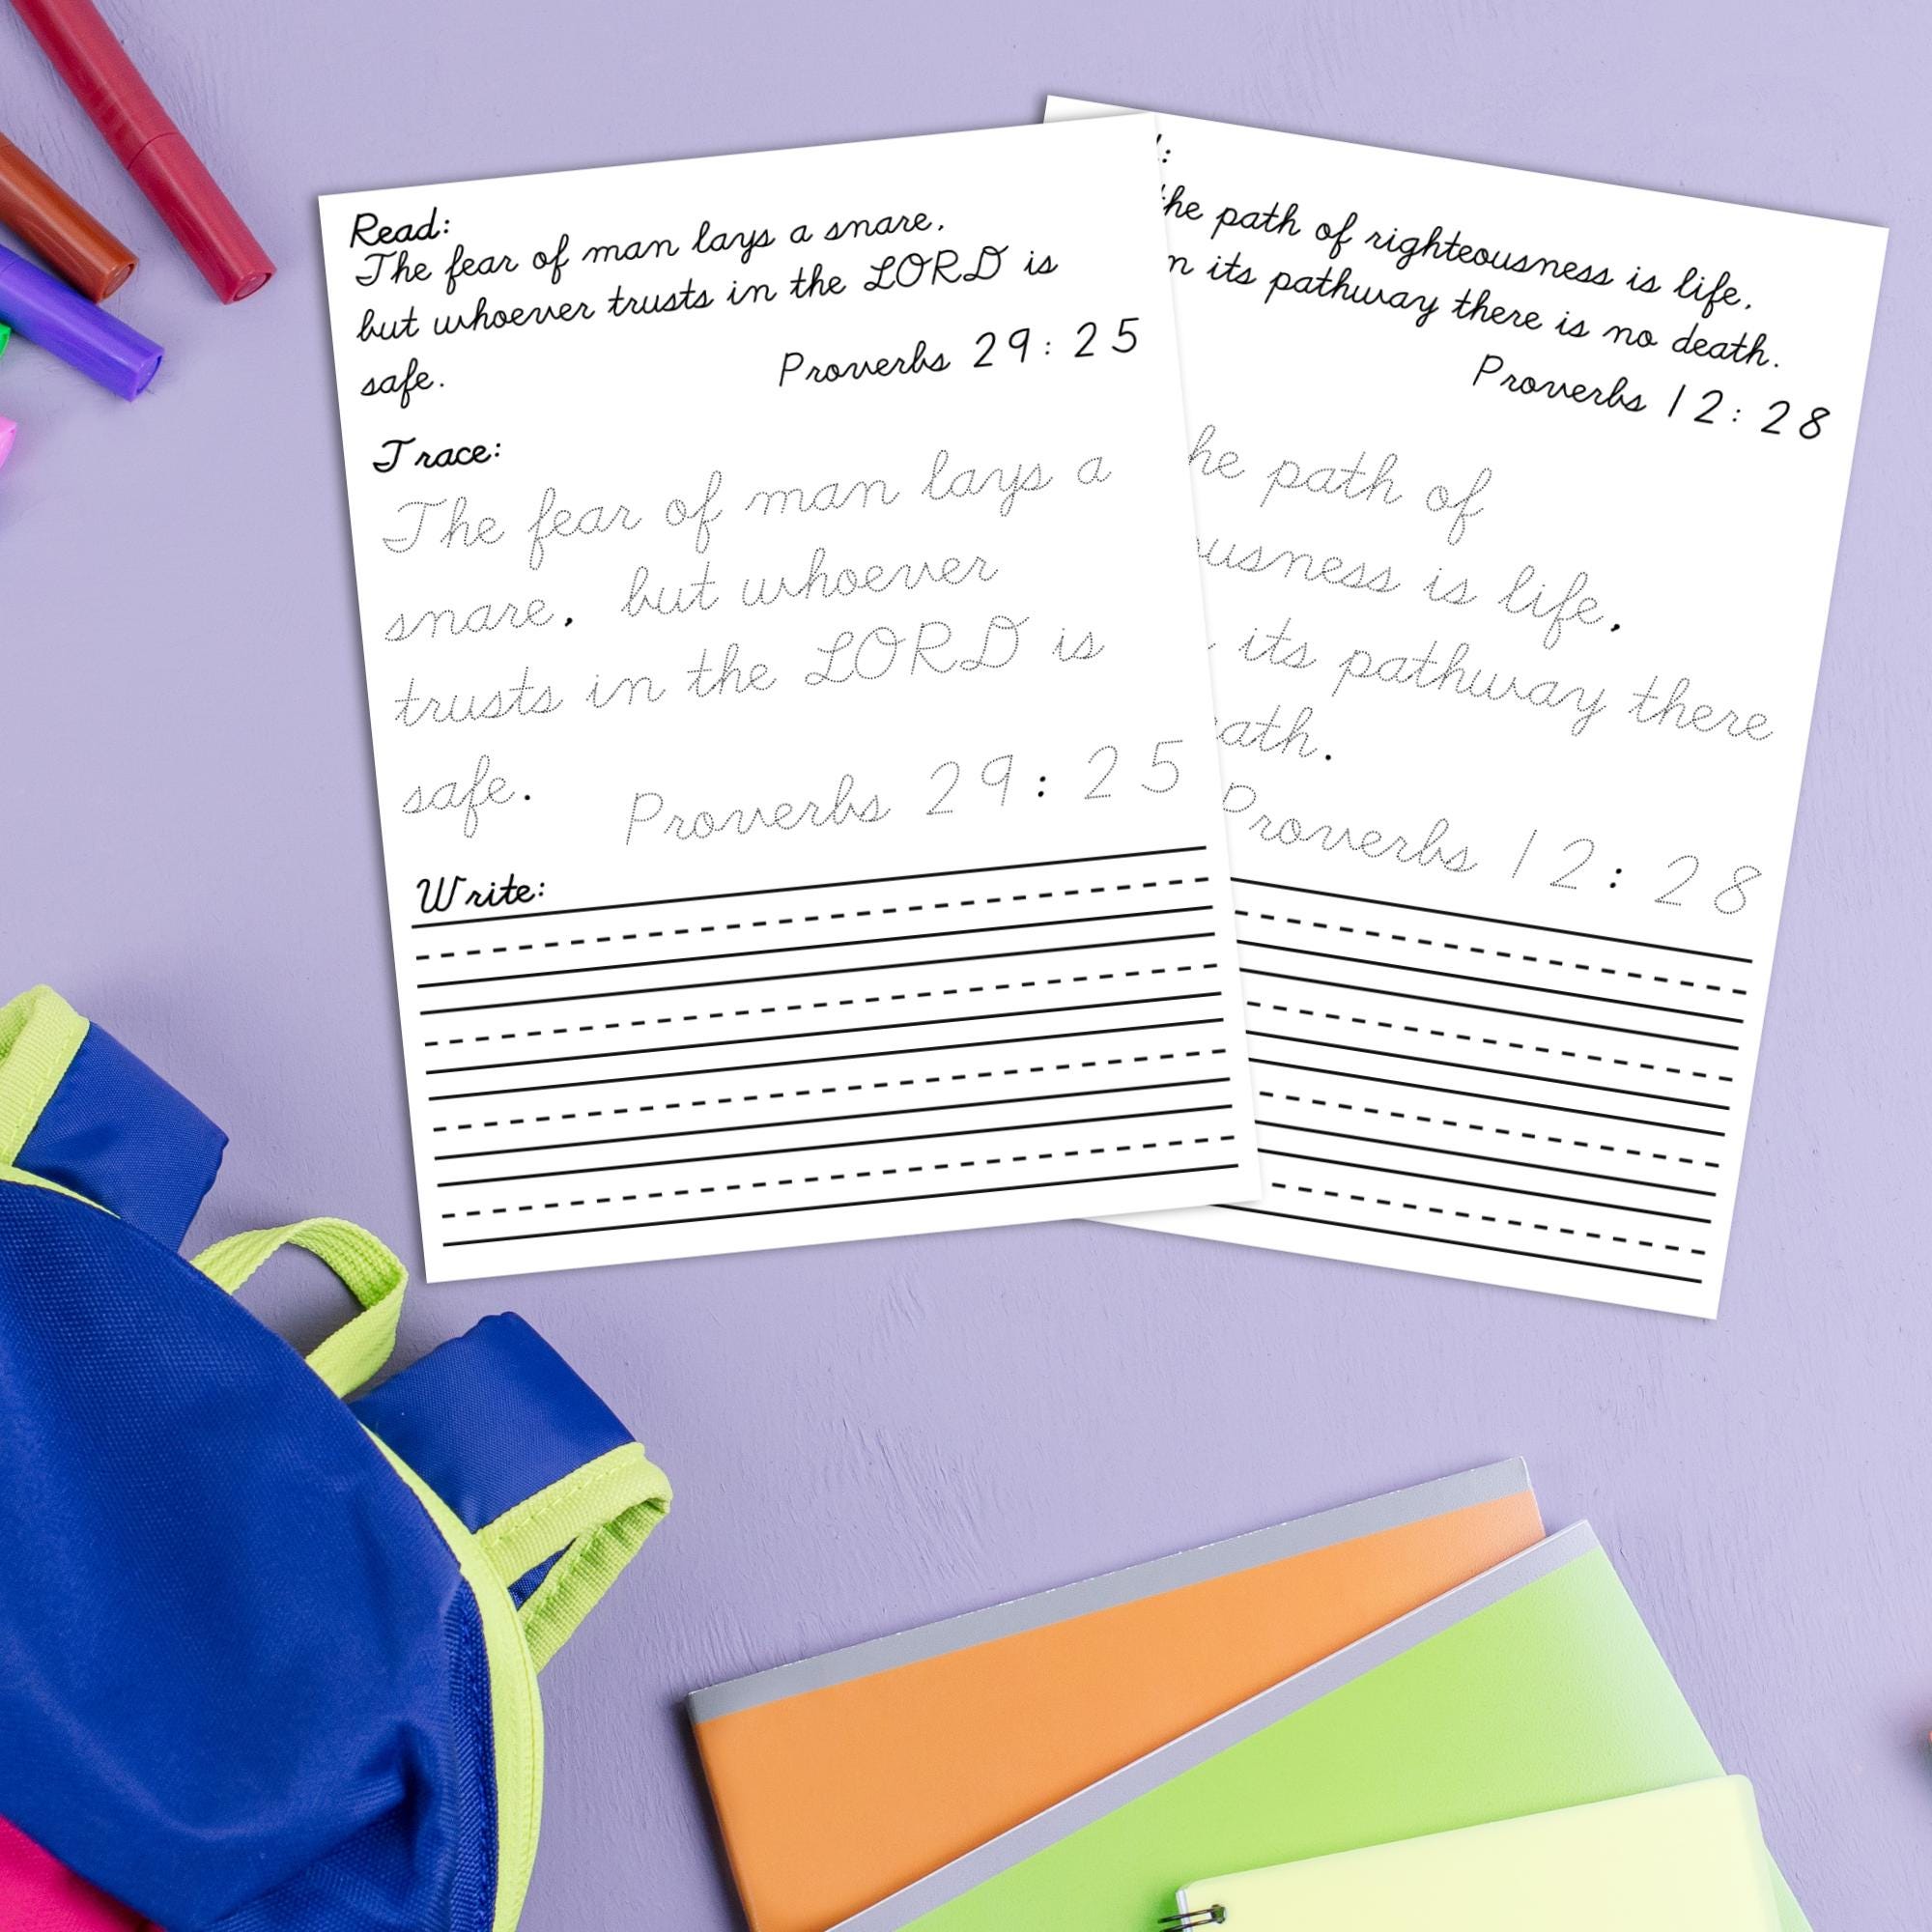 Read:
The fear of man lays a snare,
but whoever trusts in the LORD is
safe.
Proverbs 29:25
Trace:
The fear of man lays a
snare, but whoever
trusts in the LORD is
safe.
Proverbs 29:25
Write:
path of righteousness is life,
its pathway there is no death.
Proverbs 12:28
path of
is life,
its pathway there
Proverbs 12:28